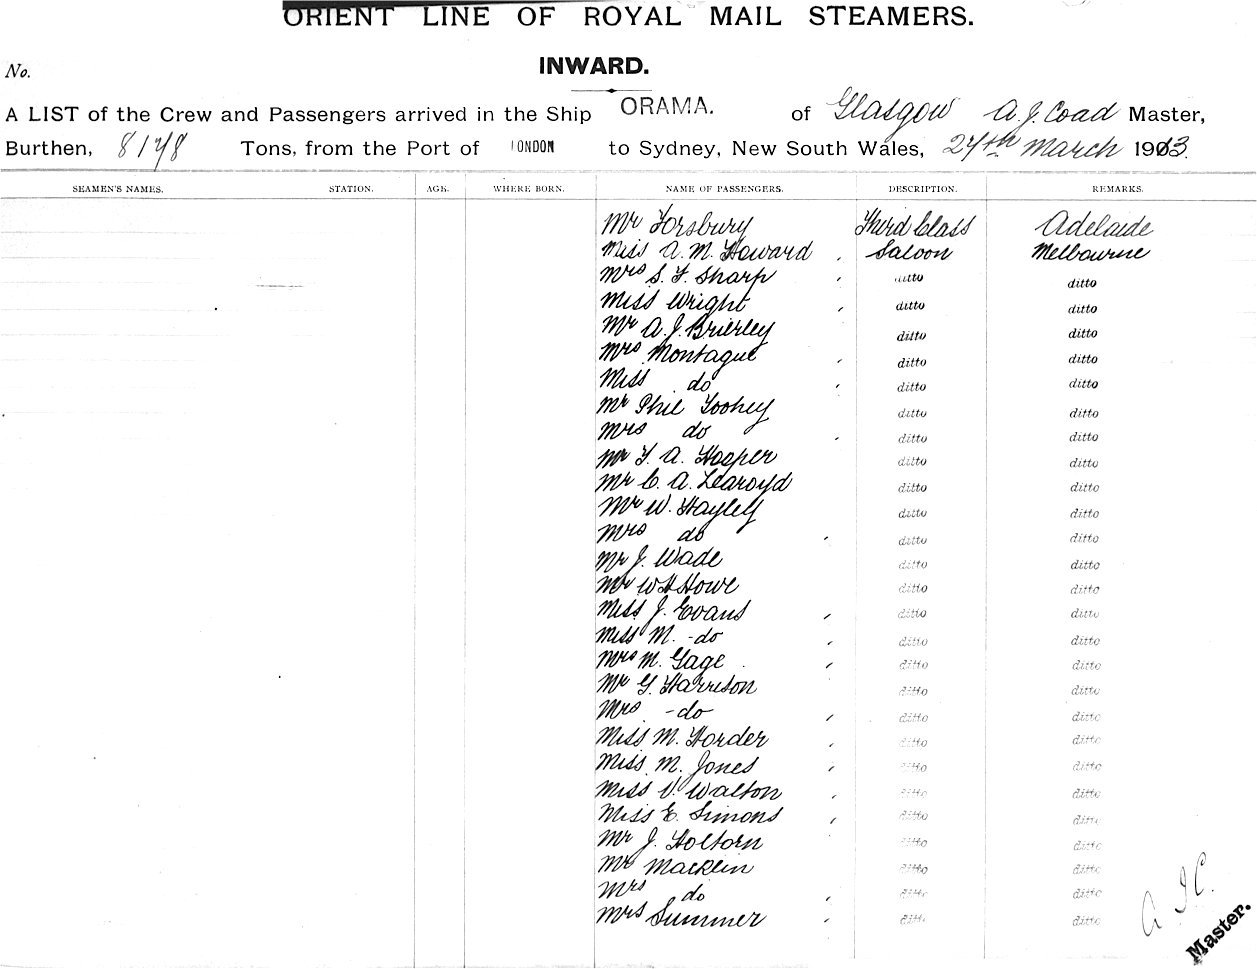 ORIENT LINE OF ROYAL MAIL STEAMERS.
INWARD.
No.
A LIST of the Crew and Passengers arrived in the Ship ORAMA. of Glasgow A. J. Coad Master,
Burthen, 8178 Tons, from the Port of LONDON to Sydney, New South Wales, 27th March 1913.
SEAMEN'S NAMES. STATION. AGE. WHERE BORN. NAME OF PASSENGERS. DESCRIPTION. REMARKS.
Mr Forsbury Third Class Adelaide
Miss A. M. Howard Saloon Melbourne
Mrs S. F. Sharp ditto ditto
Miss Wright ditto ditto
Mr A. J. Brierley ditto ditto
Mrs Montague ditto ditto
Miss do ditto ditto
Mr Phil Toohey ditto ditto
Mrs do ditto ditto
Mr F. A. Hooper ditto ditto
Mr C. A. Learoyd ditto ditto
Mr W. Hayley ditto ditto
Mrs do ditto ditto
Mr J. Wade ditto ditto
Mr W H Howe ditto ditto
Miss J. Evans ditto ditto
Miss M. -do ditto ditto
Mrs M. Gage ditto ditto
Mr G. Harrison ditto ditto
Mrs -do ditto ditto
Miss M. Horder ditto ditto
Miss M. Jones ditto ditto
Miss V. Walton ditto ditto
Miss E. Simons ditto ditto
Mr J. Holborn ditto ditto
Mr Macklin ditto ditto
Mrs do ditto ditto
Mrs Summer ditto ditto
A J C.
Master.